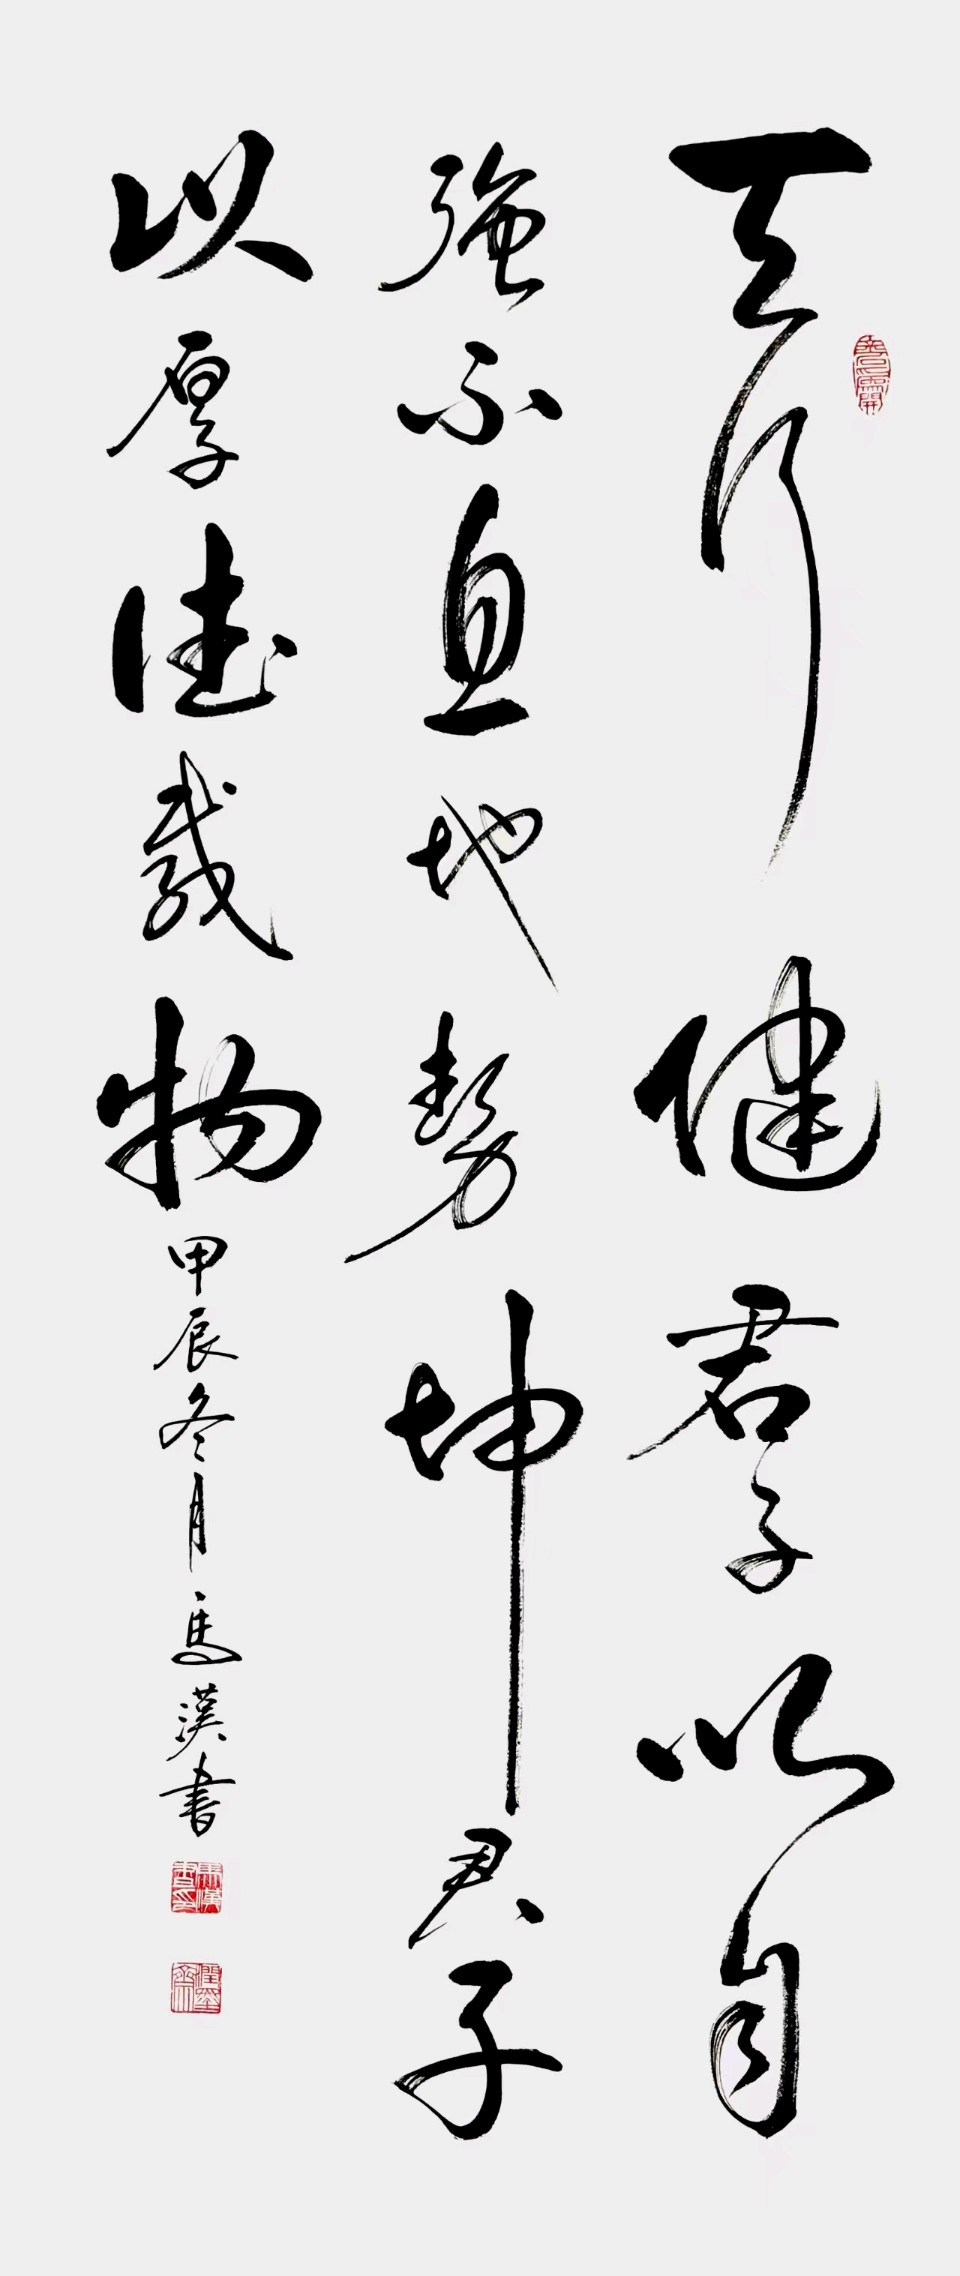 天行健君子以自
強不息地勢坤君子
以厚德載物甲辰冬月馬漢書